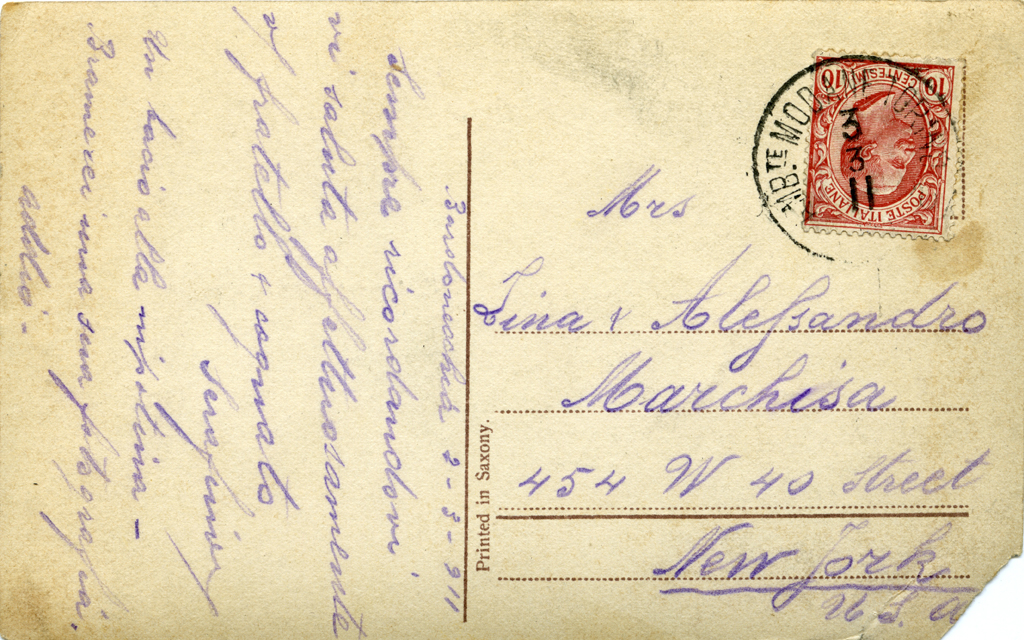 Bardonecchia 2-3-911
Sempre ricordandovi
vi saluta affettuosamente
v/ fratello + cognato
Serafino
Un bacio alla nipotina -
Bramerei una sua fotografia.
addio -
Printed in Saxony.
10 CENTESIMI 10
POSTE ITALIANE
AMB.TE MODANE TORINO
3
3
11
Mrs
Lina & Alessandro
Marchisa
454 W 40 Street
New York
U S. A